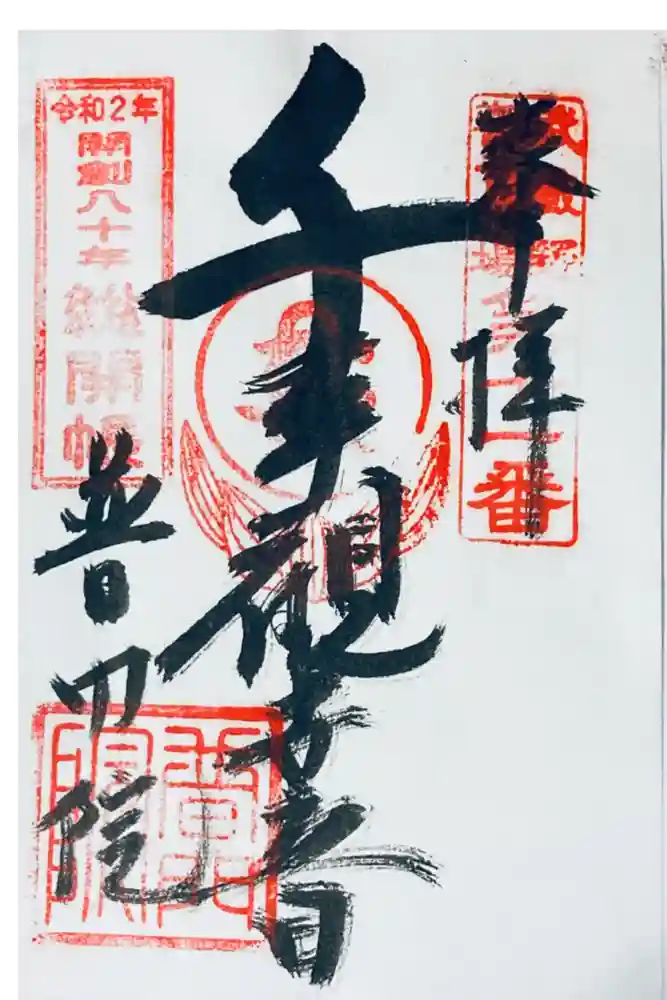 奉拝
十一番
千手観世音
令和2年
開創八十年
総開帳
普門院